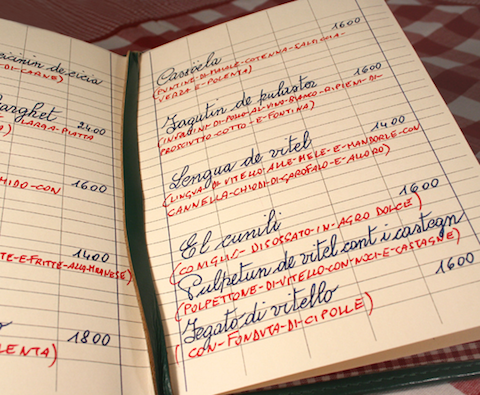 de cicia
-DI-CARNE)
2400
-LARGA-PIATTA
1600
CON
1400
TE-E-FRITTE-ALLA-MILANESE)
1800
LENTA)
Cassoela 1600
(PUNTINE-DI-MAIALE-COTENNA-SALSICCIA-
VERZA E-POLENTA)
1600
(INVOLTINI-DI-POLLO-AL-VINO-BIANCO-RIPIENI-DI-
PROSCIUTTO-COTTO-E-FONTINA)
Lengua de vitel 1400
(LINGUA-DI-VITELLO-ALLE-MELE-E-MANDORLE-CON
CANNELLA-CHIODI-DI-GAROFALO-E-ALLORO)
El cunili 1600
(CONIGLIO-DISOSSATO-IN-AGRO DOLCE)
Pulpetun de vitel cont i castegn
(POLPETTONE-DI-VITELLO-CON-NOCI-E-CASTAGNE)
Fegato di vitello 1600
(CON-FONDUTA-DI-CIPOLLE)